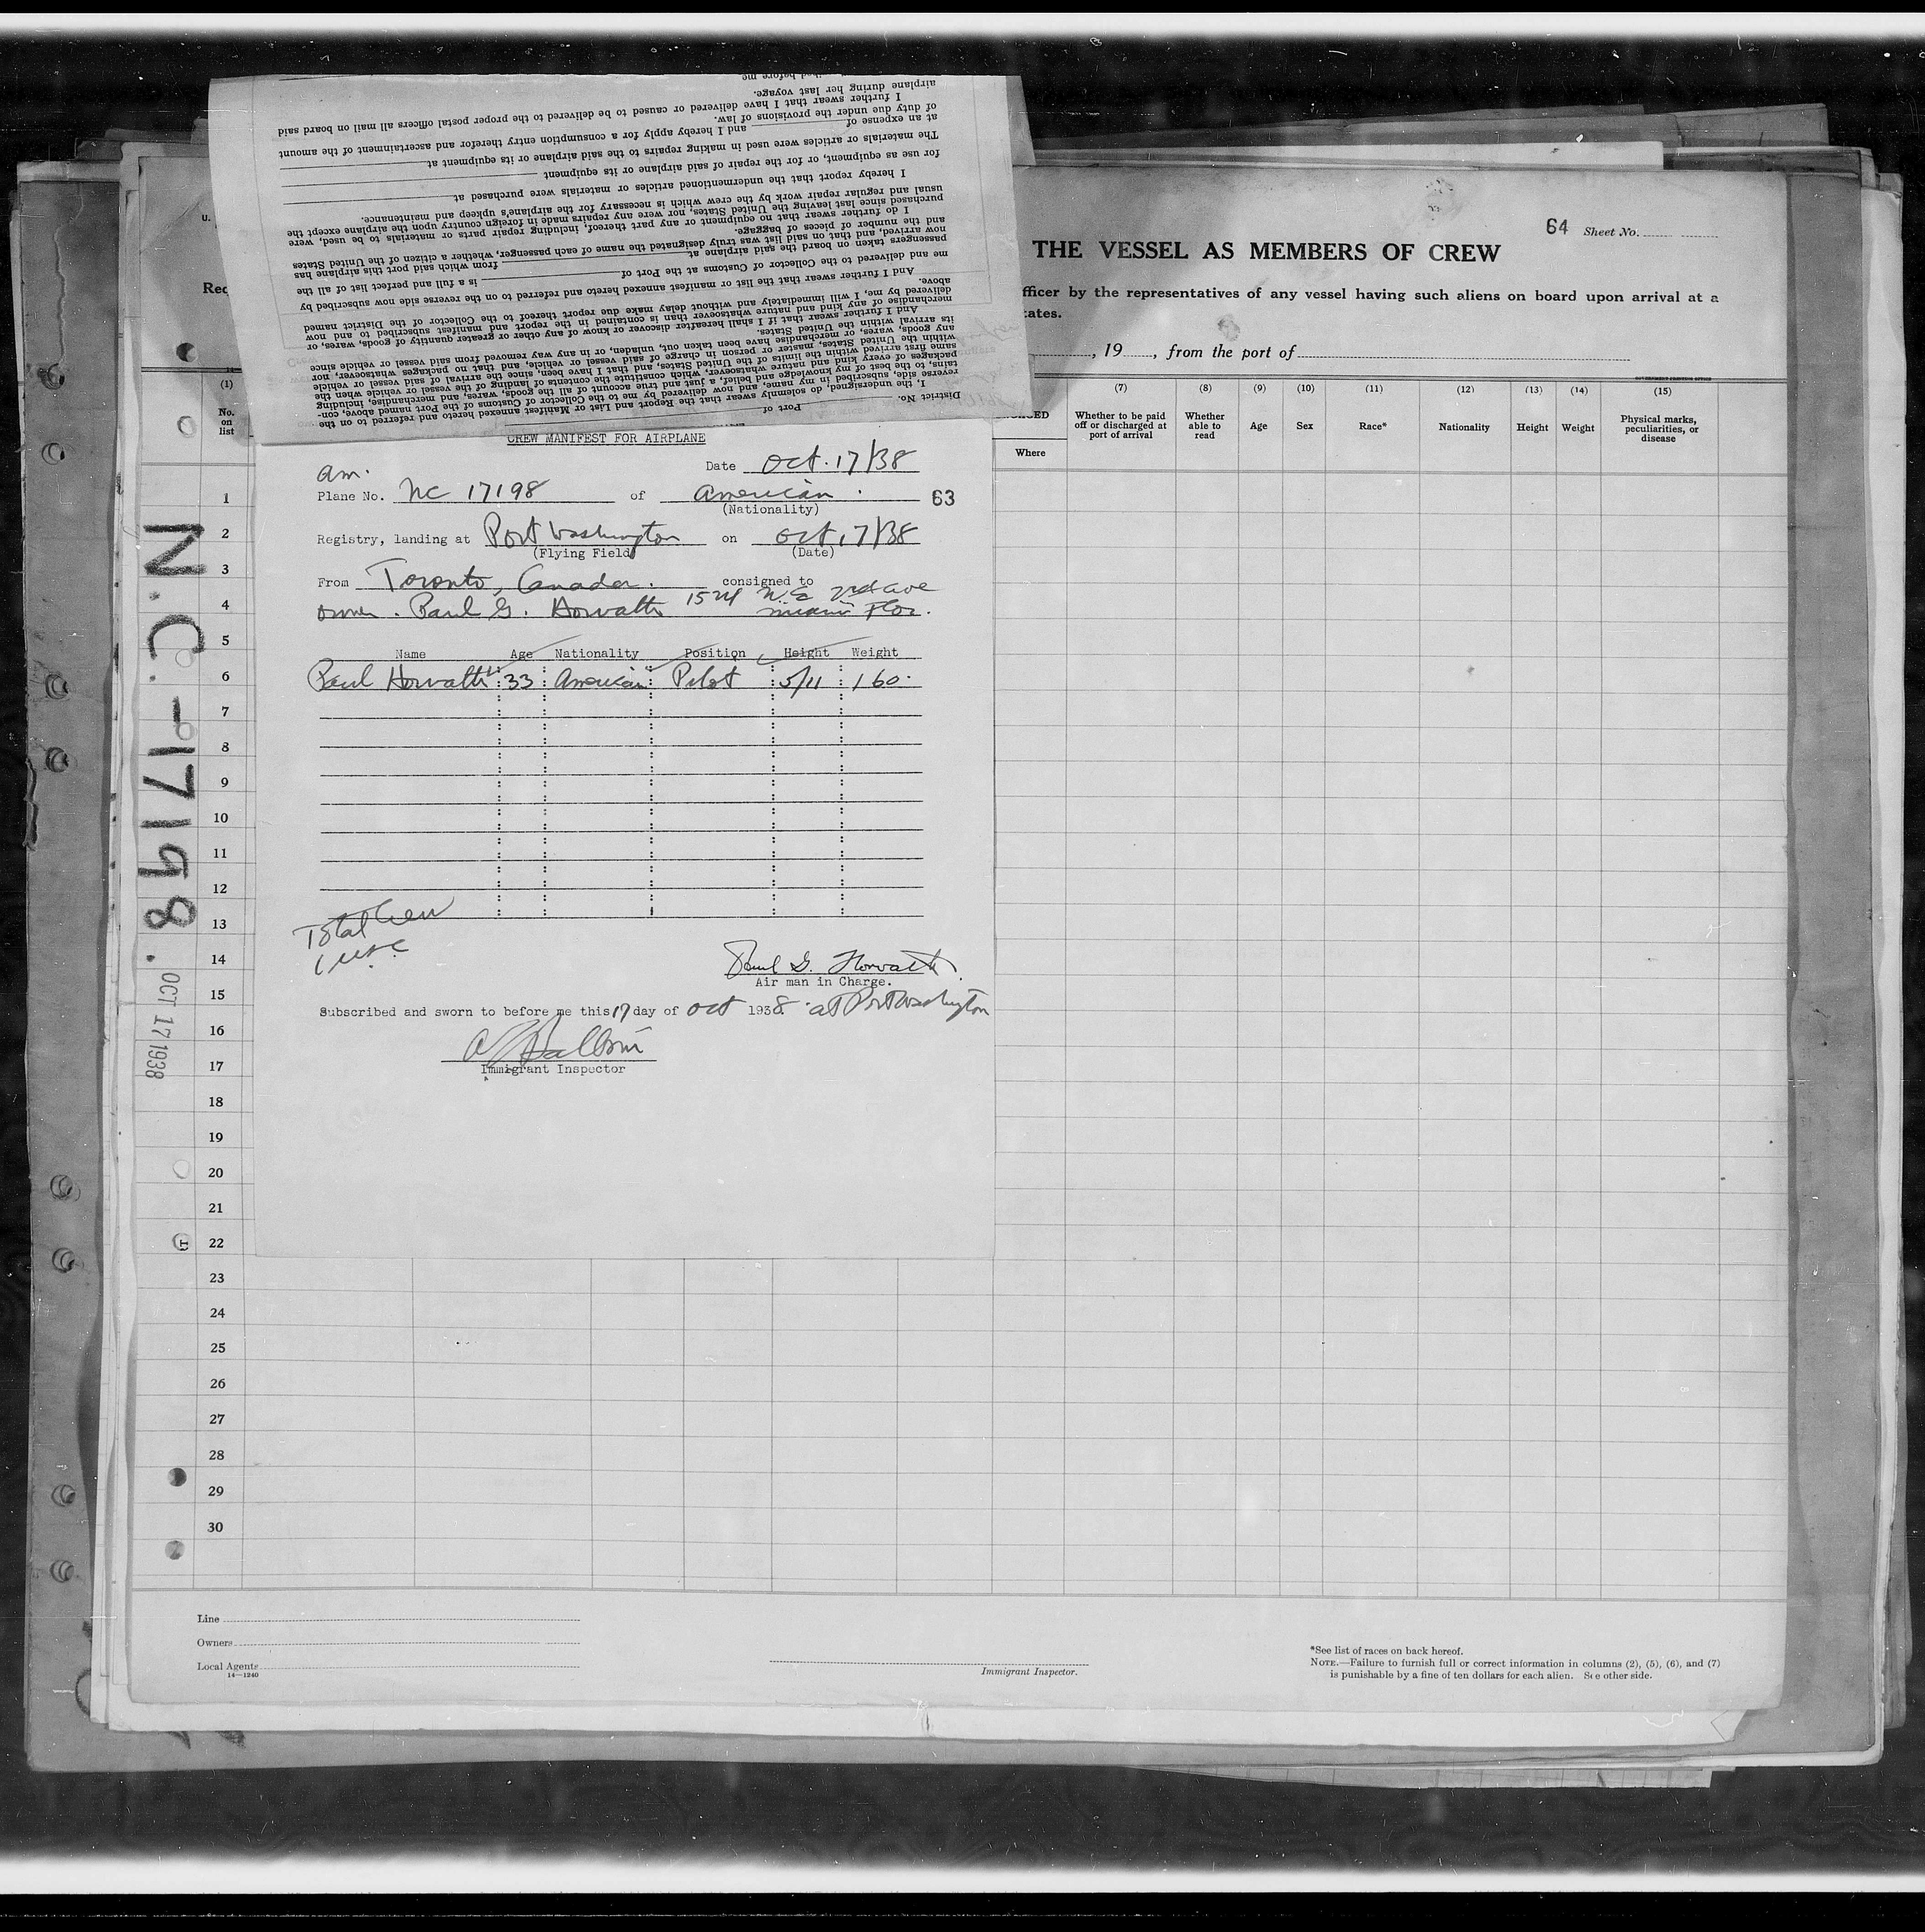 me before me
airplane during her last voyage.
I further swear that I have delivered or caused to be delivered to the proper postal officers all mail on board said
of duty due under the provisions of law.
at an expense of and I hereby apply for a consumption entry therefor and ascertainment of the amount
The materials or articles were used in making repairs to the said airplane or its equipment at
for use as equipment, or for the repair of said airplane or its equipment
I hereby report that the undermentioned articles or materials were purchased at
usual and regular repair work by the crew which is necessary for the airplane's upkeep and maintenance.
purchased since last leaving the United States, nor were any repairs made in foreign country upon the airplane except the
I do further swear that no equipment or any part thereof, including repair parts or materials to be used, were
and the number of pieces of baggage.
now arrived, and that on said list was truly designated the name of each passenger, whether a citizen of the United States
passengers taken on board the said airplane at from which said port this airplane has
me and delivered to the Collector of Customs at the Port of is a full and perfect list of all the
And I further swear that the list or manifest annexed hereto and referred to on the reverse side now subscribed by
above.
delivered by me, I will immediately and without delay make due report thereof to the Collector of the District named
merchandise of any kind and nature whatsoever than is contained in the report and manifest subscribed to and now
And I further swear that if I shall hereafter discover or know of any other or greater quantity of goods, wares, or
its arrival within the United States.
any goods, wares, or merchandise have been taken out, unladen, or in any way removed from said vessel or vehicle since
within the United States, master or person in charge of said vessel or vehicle, and that no packages whatsoever, nor
same first arrived within the limits of the United States, and that I have been, since the arrival of said vessel or vehicle
packages of every kind and nature whatsoever, which constitute the contents of landing of the vessel or vehicle when the
tains, to the best of my knowledge and belief, a just and true account of all the goods, wares, and merchandise, including
reverse side, subscribed in my name, and now delivered by me to the Collector of Customs of the Port named above, con-
I, the undersigned, do solemnly swear that the Report and List or Manifest annexed hereto and referred to on the
District No. Port of
64 Sheet No.
THE VESSEL AS MEMBERS OF CREW
fficer by the representatives of any vessel having such aliens on board upon arrival at a
tates.
, 19 , from the port of
U.
Req
(1) (7) (8) (9) (10) (11) (12) (13) (14) (15)
No. on list
Where
Whether to be paid off or discharged at port of arrival
Whether able to read
Age Sex Race* Nationality Height Weight
Physical marks, peculiarities, or disease
CREW MANIFEST FOR AIRPLANE
Date Oct. 17/38
am.
Plane No. NC 17198 of American. 63
(Nationality)
Registry, landing at Port Washington on Oct, 17/38
(Flying Field) (Date)
From Toronto, Canada. consigned to
owner. Paul G. Horvath 1524 N.E 2nd Ave
Miami Flor.
Name Age Nationality Position Height Weight
Paul Horvath 33 American Pilot 5/11 160.
Total Crew
1 USC
Paul G. Horvath.
Air man in Charge.
Subscribed and sworn to before me this 17 day of Oct 1938. at Port Washington
Immigrant Inspector
N.C.-17198.
OCT 17 1938
1
2
3
4
5
6
7
8
9
10
11
12
13
14
15
16
17
18
19
20
21
22
23
24
25
26
27
28
29
30
Line
Owners
Local Agents
14—1240
Immigrant Inspector.
*See list of races on back hereof.
NOTE.—Failure to furnish full or correct information in columns (2), (5), (6), and (7)
is punishable by a fine of ten dollars for each alien. See other side.